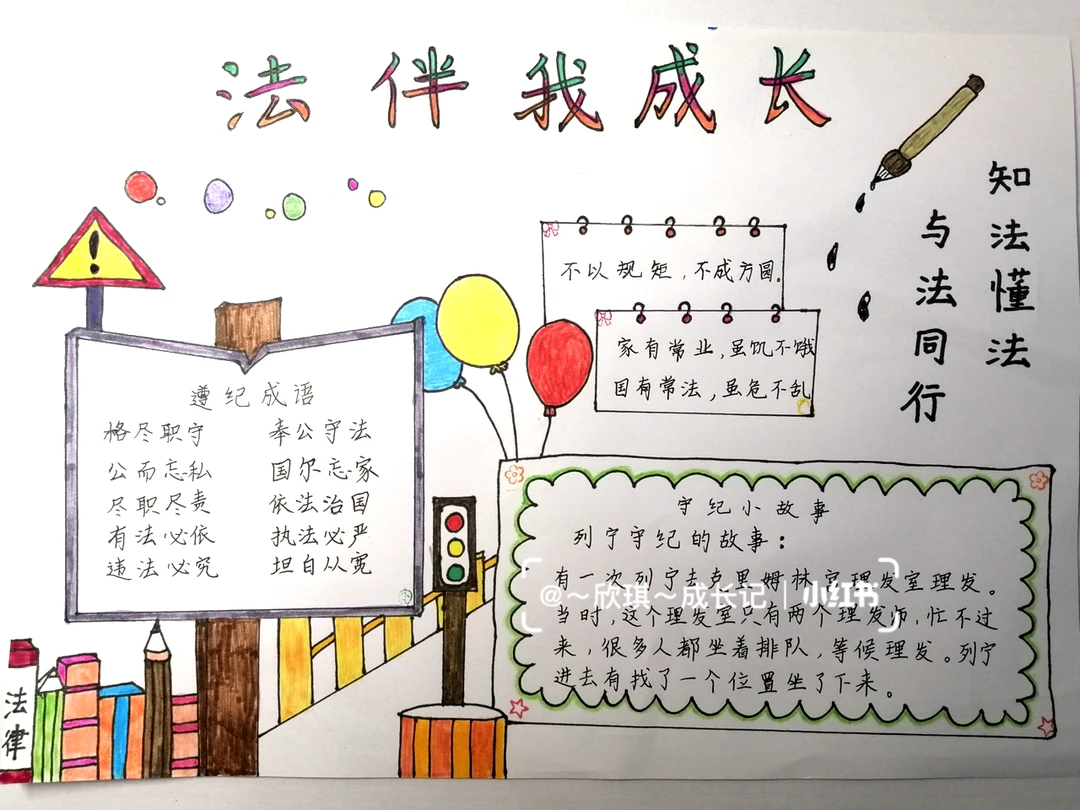 法伴我成长
知法懂法
与法同行
不以规矩，不成方圆。
家有常业，虽饥不饿
国有常法，虽危不乱
遵纪成语
格尽职守 奉公守法
公而忘私 国尔忘家
尽职尽责 依法治国
有法必依 执法必严
违法必究 坦白从宽
守纪小故事
列宁守纪的故事：
有一次列宁去克里姆林宫理发室理发。
当时，这个理发室只有两个理发师，忙不过
来，很多人都坐着排队，等候理发。列宁
进去有找了一个位置坐了下来。
@～欣琪～成长记 | 小红书
法律